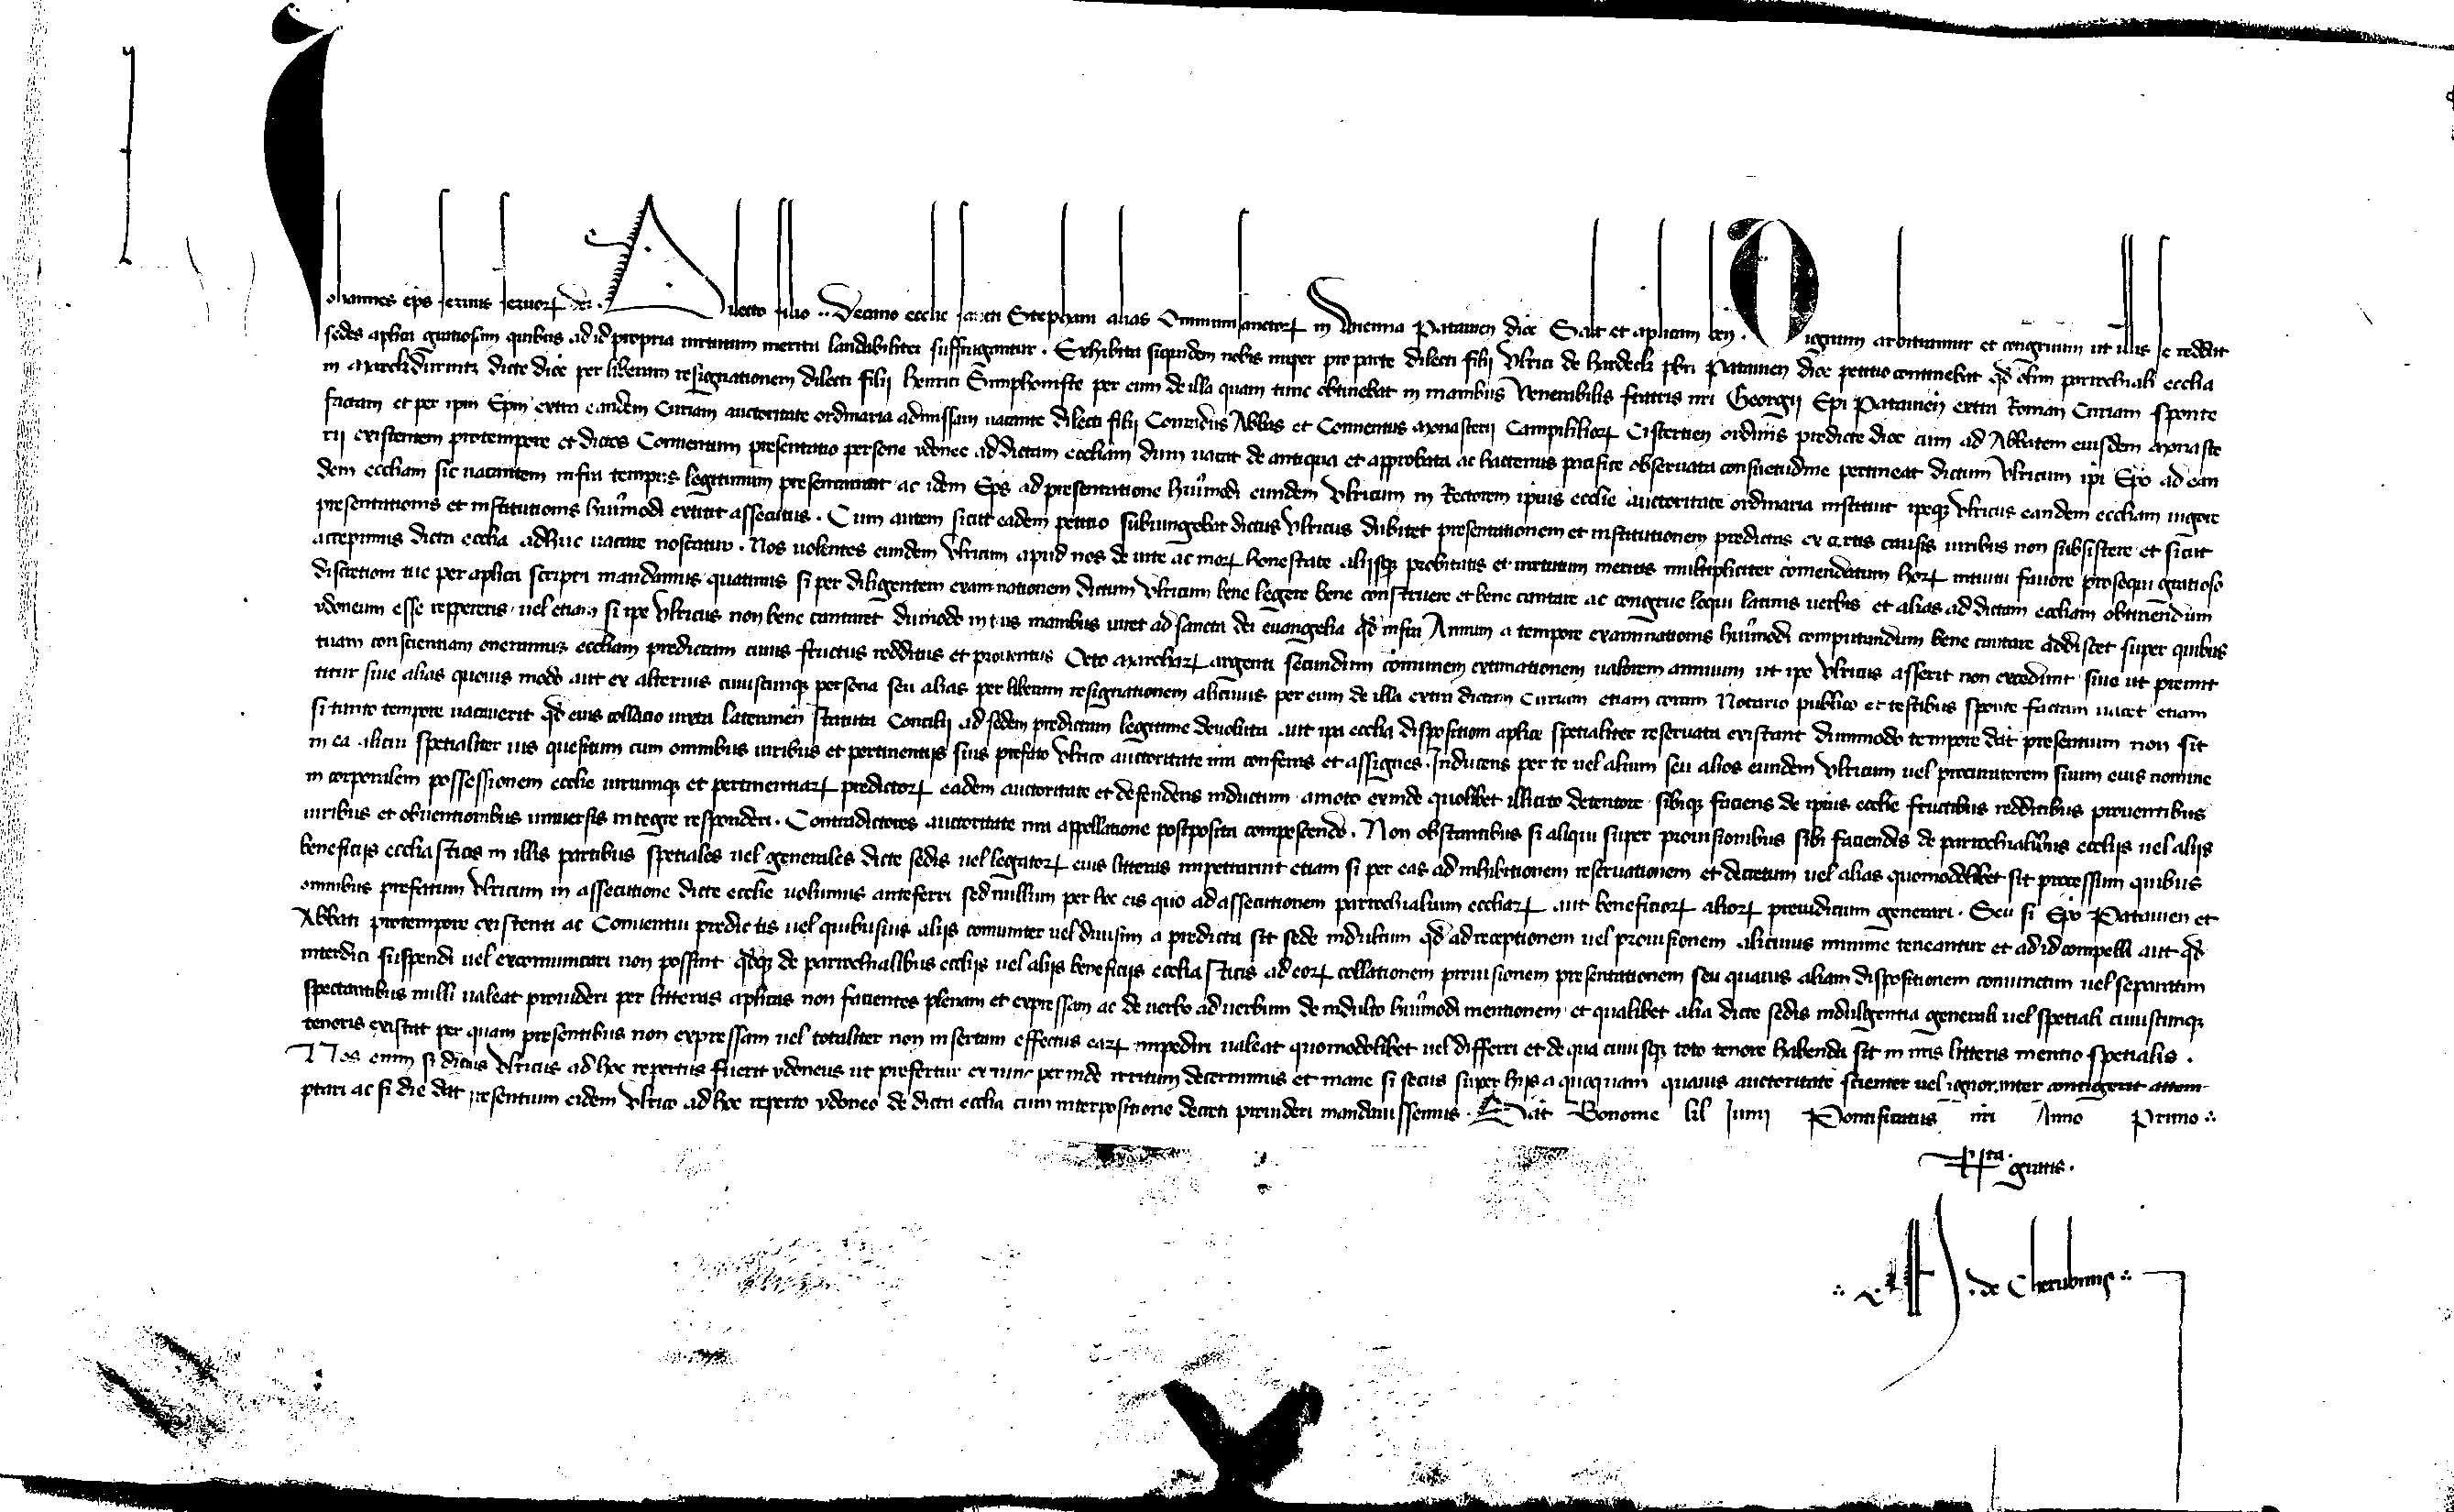 Johannes eps seruus seruoꝝ dei. Dilecto filio .. Decano ecclie sancti Stephani alias Omnium sanctoꝝ in Wienna Patauien dioc Salt et aplicam ben. Dignum arbitramur et congruum ut illis se reddat
sedes aplica gratiosam quibus ad id propria uirtutum merita laudabiliter suffragantur. Exhibita siquidem nobis nuper pro parte dilecti filij Vlrici de Hardeck pbri Patauien dioc petitio continebat qd olim parrochiali ecclia
in Marckdurnicz dicte dioc per liberam resignationem dilecti filij Henrici Simphoniste per eum de illa quam tunc obtinebat in manibus Venerabilis fratris nri Georgij Epi Patauien extra Roman Curiam sponte
factam et per ipm Epm extra eandem Curiam auctoritate ordinaria admissam uacante dilecti filij Conradus Abbas et Conuentus Monasterij Campililioꝝ Cistertien ordinis predicte dioc cum ad Abbatem eiusdem Monaste
rij existentem pro tempore et dictos Conuentum presentatio persone ydonee ad dictam eccliam dum uacat de antiqua et approbata ac hactenus pacifice obseruata consuetudine pertineat dictum Vlricum ipi Epo ad ean
dem eccliam sic uacantem infra tempus legitimum presentarunt ac idem Eps ad presentatione huiusmodi eundem Vlricum in Rectorem ipius ecclie auctoritate ordinaria instituit ipeqꝫ Vlricus eandem eccliam uigore
presentationis et institutionis huiusmodi extitit assecutus. Cum autem sicut eadem petitio subiungebat dictus Vlricus dubitet presentationem et institutionem predictas ex certis causis uiribus non subsistere et sicut
accepimus dicta ecclia adhuc uacare noscatur. Nos uolentes eundem Vlricum apud nos de uite ac moꝝ honestate alijsqꝫ probitatis et uirtutum meritis multipliciter comendatum hoꝝ intuitu fauore prosequi gratioso
discretioni tue per aplica scripta mandamus quatinus si per diligentem examinationem dictum Vlricum bene legere bene construere et bene cantare ac congrue loqui latinis uerbis et alias ad dictam eccliam obtinendum
ydoneum esse reppereris uel etiam si ipe Vlricus non bene cantaret dumodo in tuis manibus iuret ad sancta dei euangelia qd infra Annum a tempore examinationis huiusmodi computandum bene cantare addiscet super quibus
tuam conscientiam oneramus eccliam predictam cuius fructus redditus et prouentus Octo Marchaꝝ argenti secundum comunem extimationem ualorem annuum ut ipe Vlricus asserit non excedunt siue ut premit
titur siue alias quouis modo aut ex alterius cuiuscunqꝫ persona seu alias per liberam resignationem alicuius per eum de illa extra dictam Curiam etiam coram Notario publico et testibus sponte factam uacet etiam
si tanto tempore uacauerit qd eius collatio iuxta Lateranen statuta Concilij ad sedem predictam legitime deuoluta aut ipa ecclia dispositioni aplice specialiter reseruata existant dummodo tempore dat presentium non sit
in ea alicui spetialiter ius quesitum cum omnibus iuribus et pertinentijs suis prefato Vlrico auctoritate nra conferas et assignes. Inducens per te uel alium seu alios eundem Vlricum uel procuratorem suum eius nomine
in corporalem possessionem ecclie iuriumqꝫ et pertinentiaꝝ predictoꝝ eadem auctoritate et defendens inductum amoto exinde quolibet illicito detentore sibiqꝫ faciens de ipius ecclie fructibus redditibus prouentibus
iuribus et obuentionibus uniuersis integre responderi. Contradictores auctoritate nra appellatione postposita compescendo. Non obstantibus si aliqui super prouisionibus sibi faciendis de parrochialibus ecclijs uel alijs
beneficijs ecclesiasticis in illis partibus spetiales uel generales dicte sedis uel legatoꝝ eius litteras impetrarint etiam si per eas ad inhibitionem reseruationem et decretum uel alias quomodolibet sit processum quibus
omnibus prefatum Vlricum in assecutione dicte ecclie uolumus anteferri sed nullum per hoc eis quo ad assecutionem parrochialium eccliaꝝ aut beneficioꝝ alioꝝ preiudicium generari. Seu si Epo Patauien et
Abbati pro tempore existenti ac Conuentui predictis uel quibusuis alijs comuniter uel diuisim a predicta sit sede indultum qd ad receptionem uel prouisionem alicuius minime teneantur et ad id compelli aut qd
interdici suspendi uel excomunicari non possint qdqꝫ de parrochialibus ecclijs uel alijs beneficijs ecclesiasticis ad eoꝝ collationem prouisionem presentationem seu quauis aliam dispositionem coniunctim uel separatim
spectantibus nulli ualeat prouideri per litteras aplicas non facientes plenam et expressam ac de uerbo ad uerbum de indulto huiusmodi mentionem et qualibet alia dicte sedis indulgentia generali uel spetiali cuiuscunqꝫ
tenoris existat per quam presentibus non expressam uel totaliter non insertam effectus eaꝝ impediri ualeat quomodolibet uel differri et de qua cuiusqꝫ toto tenore habenda sit in nris litteris mentio spetialis.
Nos enim si dictus Vlricus ad hoc repertus fuerit ydoneus ut prefertur ex nunc perinde irritum decernimus et inane si secus super hijs a quoquam quauis auctoritate scienter uel ignoranter contigerit attem
ptari ac si die dat presentium eidem Vlrico ad hoc reperto ydoneo de dicta ecclia cum interpositione decreti prouideri mandauissemus. Dat Bononie kl Junij Pontificatus nri Anno Primo
gratis.
de Cherubinis